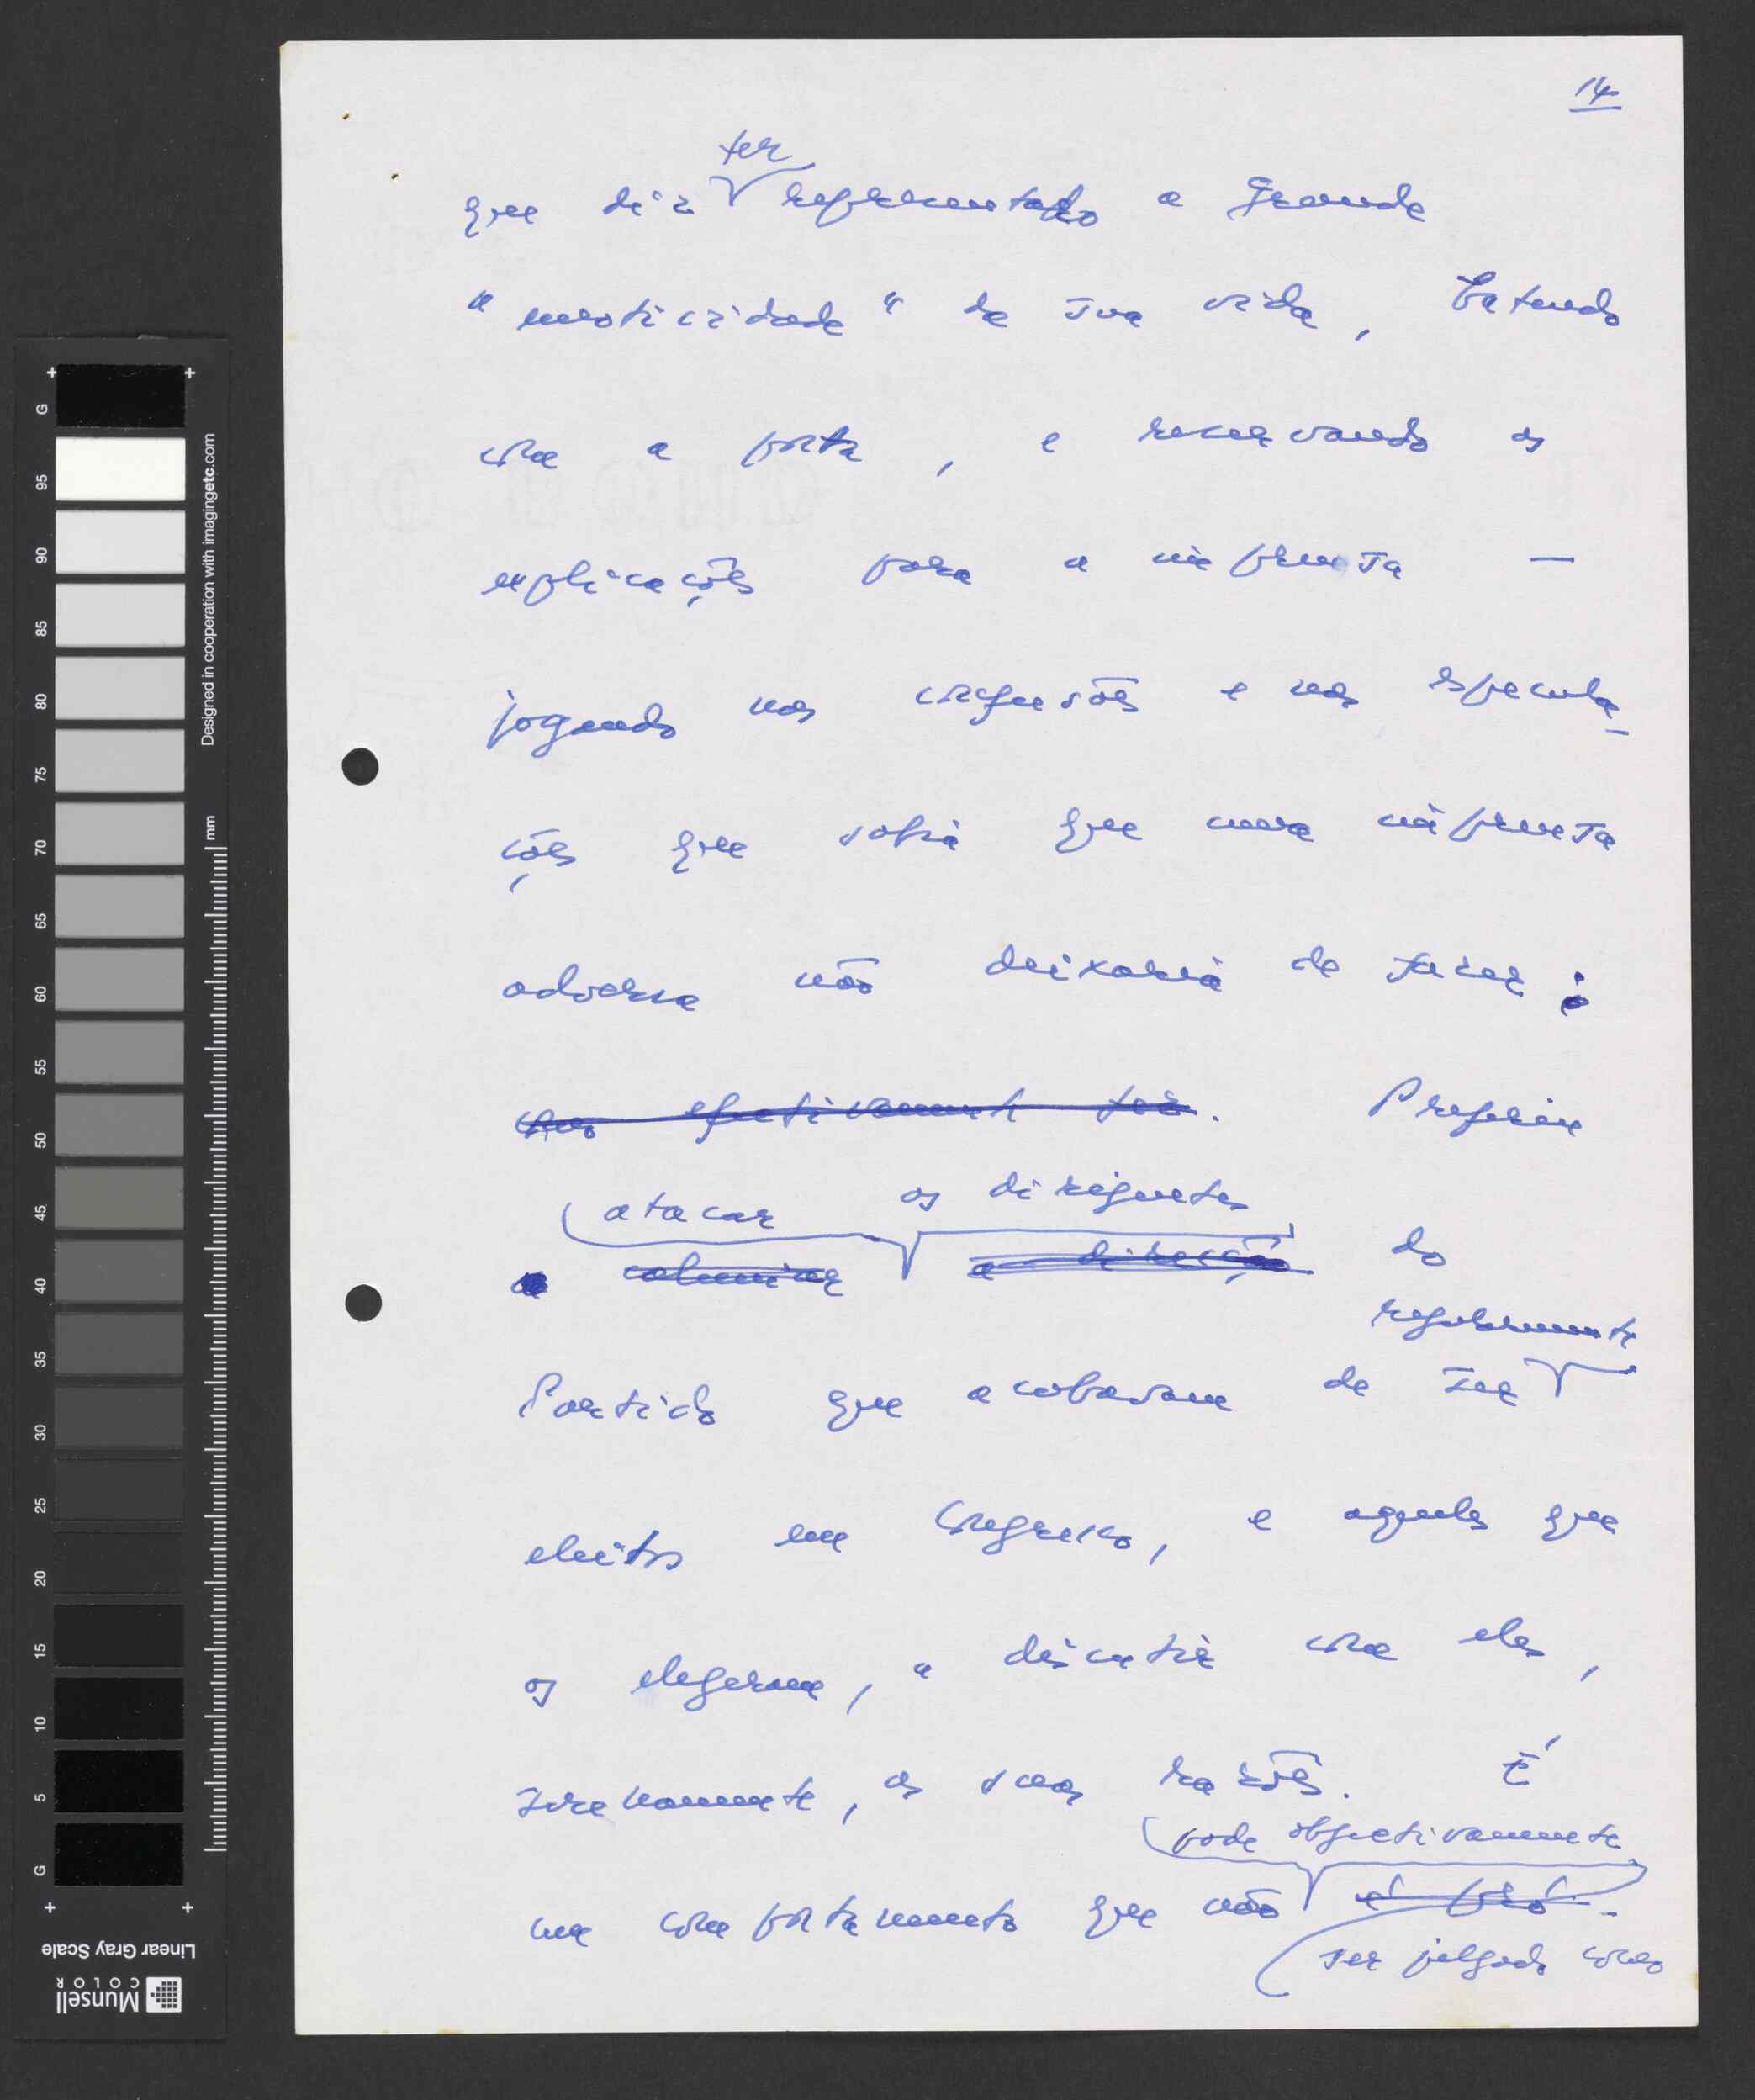 14
ter
que diz representado a grande
"mesticidade" da sua vida, batendo
com a porta, e reservando as
explicações para a imprensa —
jogando nas confusões e nas especula-
ções que sabia que uma imprensa
adversa não deixaria de fazer;
como efectivamente fez. Preferiu
atacar os dirigentes
caluniar a direcção do
regularmente
Partido que acabavam de ser
eleitos em Congresso, e aqueles que
os elegeram, a discutir com eles,
serenamente, as suas razões. É
pode objectivamente
um comportamento que não é pró-
ser julgado como
G
95
90
85
80
75
70
65
60
55
50
45
40
35
30
25
20
15
10
5
G
Designed in cooperation with imagingetc.com
mm
Linear Gray Scale
Munsell
COLOR